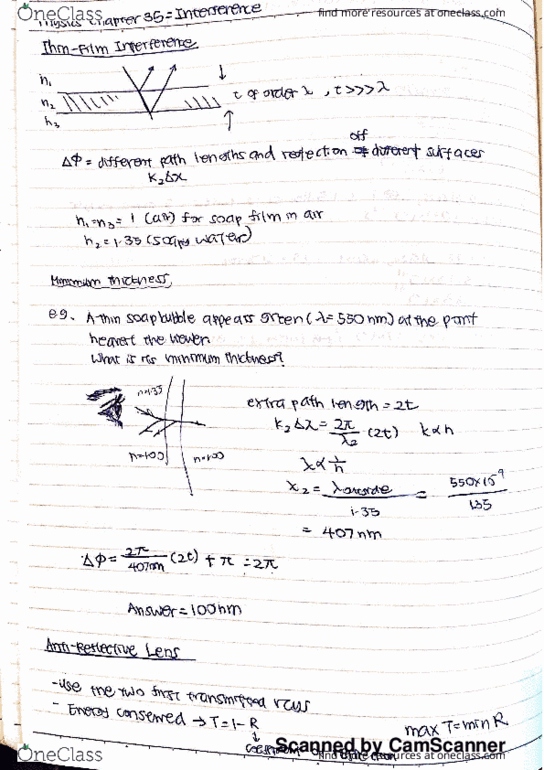 OneClass
find more resources at oneclass.com
Physics Chapter 35 = Interference
Thin-Film Interference
n₁
n₂
n₃
t of order λ, t>>>λ
ΔΦ = different path lengths and reflection off different surfaces
k₂Δx
n₁=n₃= 1 (air) for soap film in air
n₂=1.35 (soapy water)
Minimum thickness
eg. A thin soap bubble appears green (λ=550nm) at the point
nearest the viewer.
What is its minimum thickness?
n=1.35
n=1.00
n=1.00
extra path length = 2t
k₂Δx = 2π/λ₂ (2t) k∝n
λ∝ 1/n
λ₂ = λoutside / 1.35 = 550×10⁻⁹ / 1.35
= 407nm
ΔΦ = 2π/407nm (2t) + π = 2π
Answer = 100nm
Anti-Reflective Lens
-use the two first transmitted rays
- Energy conserved → T=1-R
max T = min R
Scanned by CamScanner
OneClass
find more resources at oneclass.com